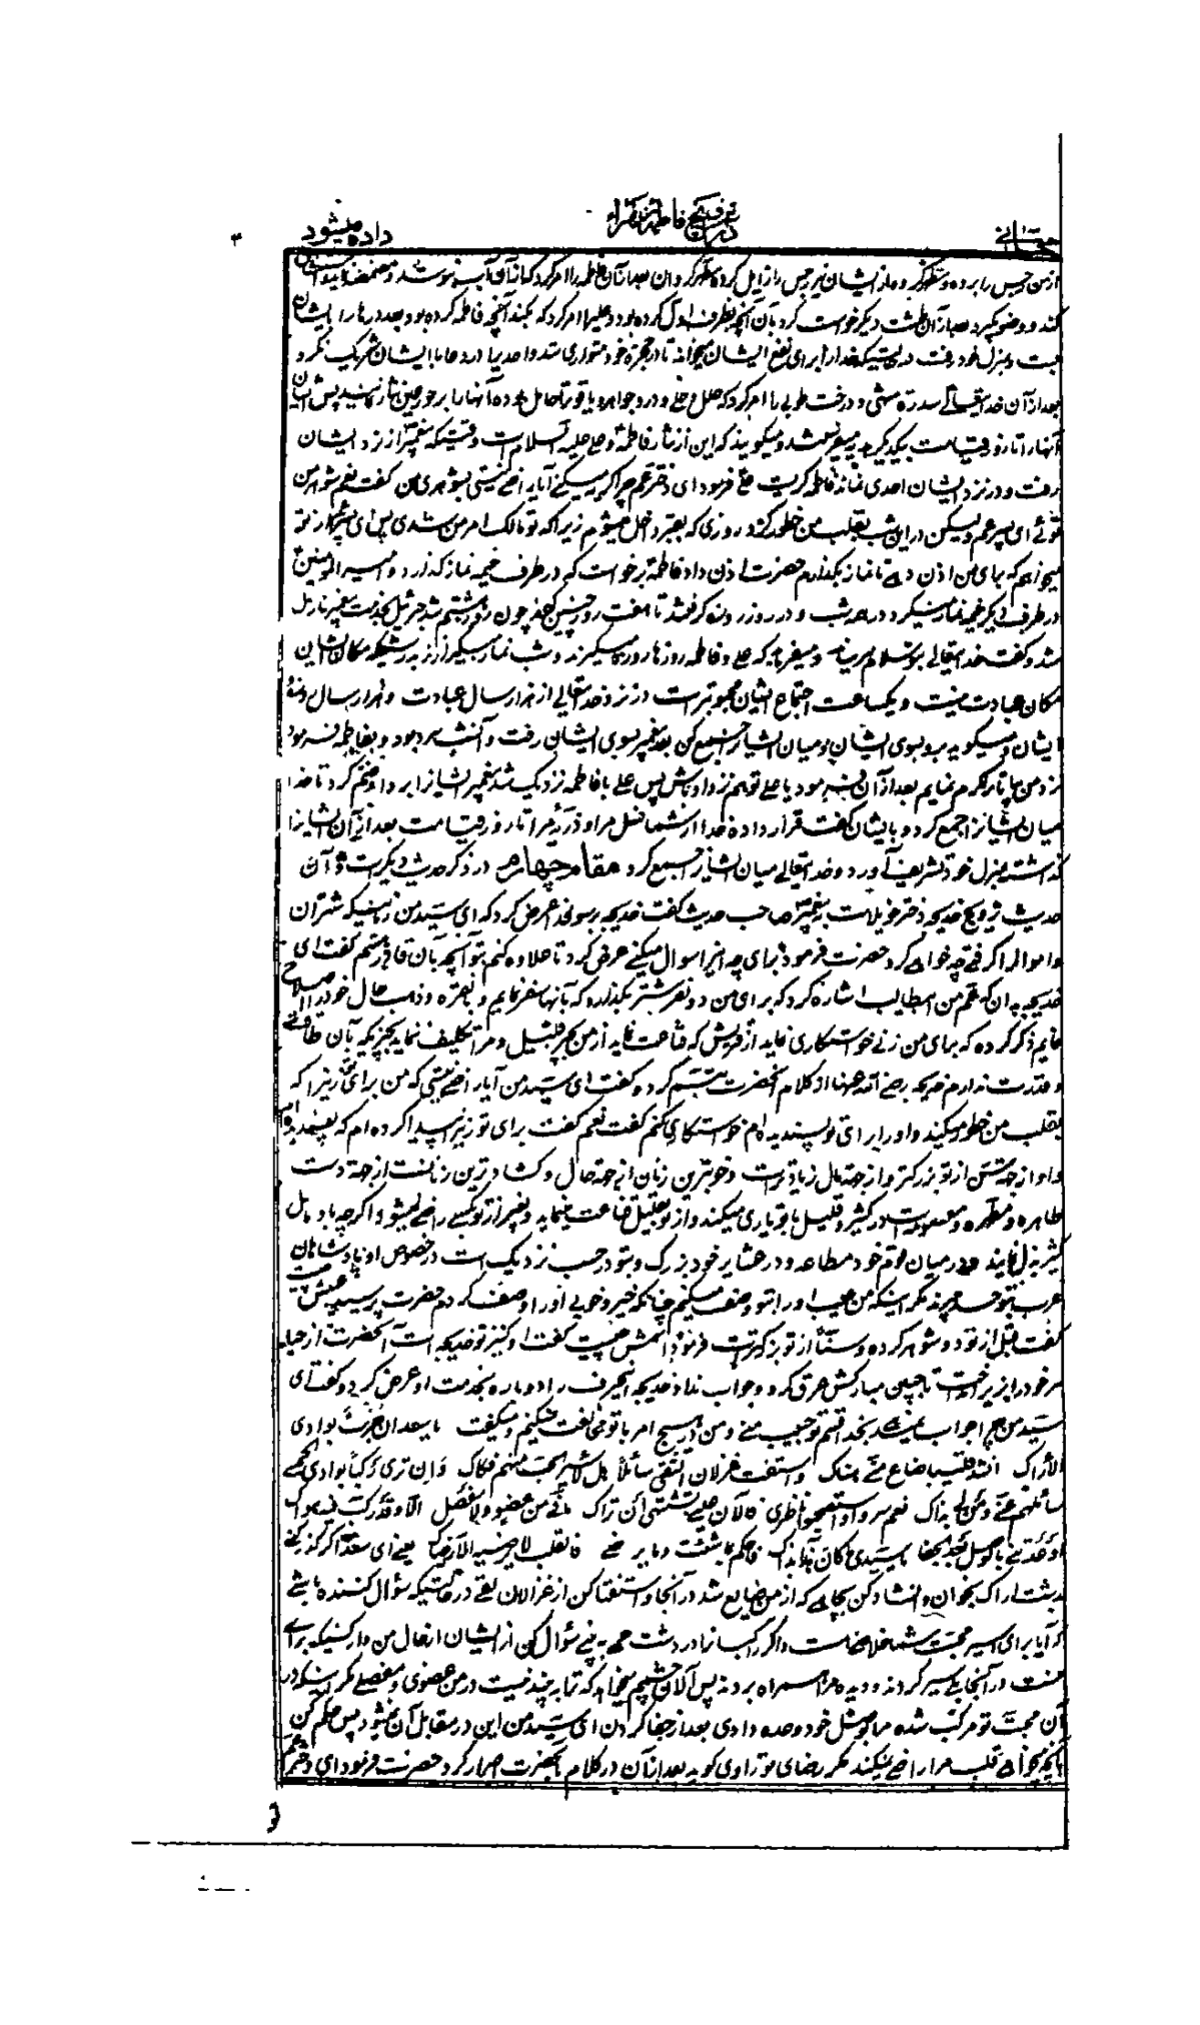 در تزویج فاطمه زهراء
داده میشود
از من رجس را برده و مطهر کرده از ایشان نیز رجس را زایل کرده مطهر گردان بعد از آن فاطمه را امر کرد که از آن آب بنوشد و مضمضه
کند و وضو گیرد بعد از آن طشت دیگر خواست کرد بآن آنچه بطرف اول کرده بود و علی را امر کرد که بکند آنچه فاطمه کرده بود بعد در را بر ایشان
بست و بمنزل خود رفت در حالتیکه خدا را برای نفع ایشان میخواند تا در حجره خود متواری شد و احدی را در دعا با ایشان شریک نکرد
بعد از آن خدایتعالی سدرة منتهی و درخت طوبی را امر کرد که حلل و حلی و در و جواهر و یاقوت حامل بوده آنها را بر حورعین نثار
آنها را تا روز قیامت بیکدیگر هدیه میفرستند و میگویند که این از نثار فاطمه و علی علیه السلام است وقتیکه پیغمبر از نزد ایشان
رفت و در نزد ایشان احدی نماند فاطمه گریست علی فرمود ای دختر عم چرا گریه میکنی آیا راضی نیستی بشوهری من گفت نعم شوهر من
توئی ای پسر عم ولیکن در این شب بقلب من خطور کرد روزی که بقبر داخل میشوم زیرا که تو مالک امر من شدی پس ای پسر عم از تو
میخواهم که برای من اذن دهی تا نماز بگذارم حضرت اذن داد فاطمه برخواست که در طرف خیمه نماز گذارد و امیر المؤمنین
در طرف دیگر خیمه نماز میکرد در شب و در روز روزه گرفتند تا هفت روز چنین کردند چون روز هشتم شد جبرئیل بخدمت پیغمبر نازل
شد و گفت خدایتعالی بتو سلام میرساند و میفرماید که علی و فاطمه روزها روزه میگیرند و شب نماز میگزارند بدرستیکه مکان ایشان
مکان عبادت نیست و یکساعت اجتماع ایشان محبوبتر است در نزد خدایتعالی از هزار سال عبادت و هزار سال روزهٔ
ایشان و میگوید برو بسوی ایشان و میان ایشان جمع کن بعد پیغمبر بسوی ایشان رفت و آنشب سرد بود و بفاطمه فرمود
نزد من بیا تا گرم نمایم بعد از آن فرمود یا علی تو هم نزد او باش پس علی با فاطمه نزدیک شد پیغمبر ایشان را بردا و ضم کرد تا خدا
میان ایشان را جمع کرد و بایشان گفت قرار داده خدا از شما نسل مرا و ذریهٔ مرا تا روز قیامت بعد از آن ایشان را
گذاشته بمنزل خود تشریف آورد و خدایتعالی میان ایشان جمع کرد مقام چهارم در ذکر حدیث دیگر است و آن
حدیث تزویج خدیجه دختر خویلد است به پیغمبر صاحب حدیث گفت خدیجه برسولخدا عرض کرد که ای سید من زمانیکه شتران
و اموال را گرفتی چه خواهی کرد حضرت فرمود برای چه این سوال میکنی عرض کرد تا علاوه کنم بتو آنچه بآن قادر هستم گفت ای
خدیجه بدان که عمم من ابیطالب اشاره کرد که برای من دو نفر شتر بگذارد که بآنها سفر نمایم و بنقره و ذهب حال خود را اصلاح
نمایم ذکر کرده که برای من زنی خواستگاری نماید از قریش که قناعت نماید از من بچیز قلیل و مرا تکلیف ننماید بچیزیکه بآن طاقت
و قدرت ندارم خدیجه رضی الله عنها از کلام آنحضرت تبسم کرده گفت ای سید من آیا راضی نیستی که من برای تو زنی را که
بقلب من خطور میکند و او را برای تو پسندیده‌ام خواستگاری کنم گفت نعم گفت برای تو زنی پیدا کرده‌ام که
و او از جهة سن از تو بزرگتر و از جهة مال زیادتر است و خوبترین زنان از جهة حال و گشاده‌ترین زنانست از جهة دست
طاهره و مطهره و معصومه است در کثیر و قلیل با تو یاری میکند و از تو بقلیل قناعت مینماید و بغیر از تو بکسی راضی نمیشود اگرچه باو مال
کثیر بذل نمایند و در میان قوم خود مطاعه و در عشایر خود بزرگ و بتو در حسب نزدیک است در خصوص او پادشاهان
عرب بتو حسد میبرند مگر اینکه من عیب او را بتو وصف میکنم چنانکه خیر و خوبی او را وصف کردم حضرت پرسید عیبش چیست
گفت قبل از تو دو شوهر کرده و سنّاً از تو بزرگتر است فرمود اسمش چیست گفت او کنیز تو خدیجه است آنحضرت از حیا
سر خود را بزیر انداخت تا جبین مبارکش عرق کرد و جواب نداد خدیجه اینحرف را دوباره بخدمت او عرض کرد و گفت ای
سید من چرا جواب نمیدهی بخدا قسم تو حبیب منی و من در هیچ امر با تو مخالفت نمیکنم و میگفت یا سعد ان جزت بوادی
الأراک انشد قلیبا ضاع منّی هناک و استفت غزلان النقی سائلاً هل لأسیر الحب منهم فکاک و ان تری رکباً بوادی الحمی
سائلهم عنّی و من لی بذاک نعم سروا و استصحبوا ناظری فالآن عینی تشتهی أن تراک مافی من عضو و لا مفصل الا و قد رکب فیه هواک
اوعدتنی بالوصل بعد الجفا یا سیدی ماذا کان ذاک فاحکم بما شئت و ما یرضی فالقلب لا یرضیه الا رضاک یعنی ای سعد اگر گذر کنی
بدشت اراک بخوان و انشاد کن بجائی که از من ضایع شد در آنجا و استفتا کن از غزالان نقی در حالتیکه سؤال کننده باشی
که آیا برای اسیر محبت شما خلاصی هست و اگر راکب را در دشت حمی به بینی سؤال کن از ایشان از حال من
در آنجا سیر کردند و دیده مرا همراه بردند پس الآن چشمم میخواهد که ترا به بیند نیست در من عضوی و مفصلی مگر اینکه در
آن محبت تو مرکب شده مرا بوصل خود وعده دادی بعد از جفا کردن ای سید من این در مقابل آن پس حکم کن
بآنچه میخواهی قلب مرا راضی نمیکند مگر رضای تو راوی گوید بعد از آن در کلام بآنحضرت اصرار کرد حضرت فرمود ای دختر عم